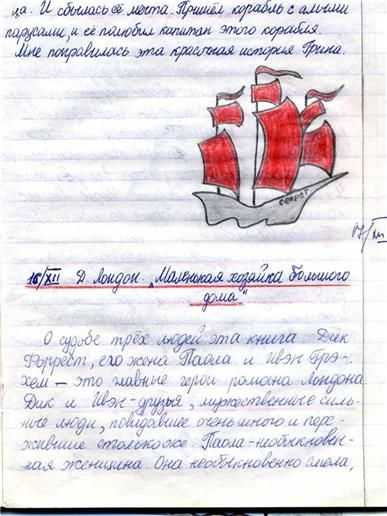 ца. И сбылась её мечта. Пришёл корабль с алыми
парусами, и её полюбил капитан этого корабля.
Мне понравилась эта красивая история Грина.
СЕКРЕТ
17/XII
16/XII Д. Лондон. „Маленькая хозяйка большого
дома"
О судьбе трёх людей эта книга. Дик
Форрест, его жена Паола и Ивэн Грэ-
хем – это главные герои романа Лондона.
Дик и Ивэн - друзья, мужественные силь-
ные люди, повидавшие очень много и пере-
жившие столько же. Паола - необыкновен-
ная женщина. Она необыкновенно смела,